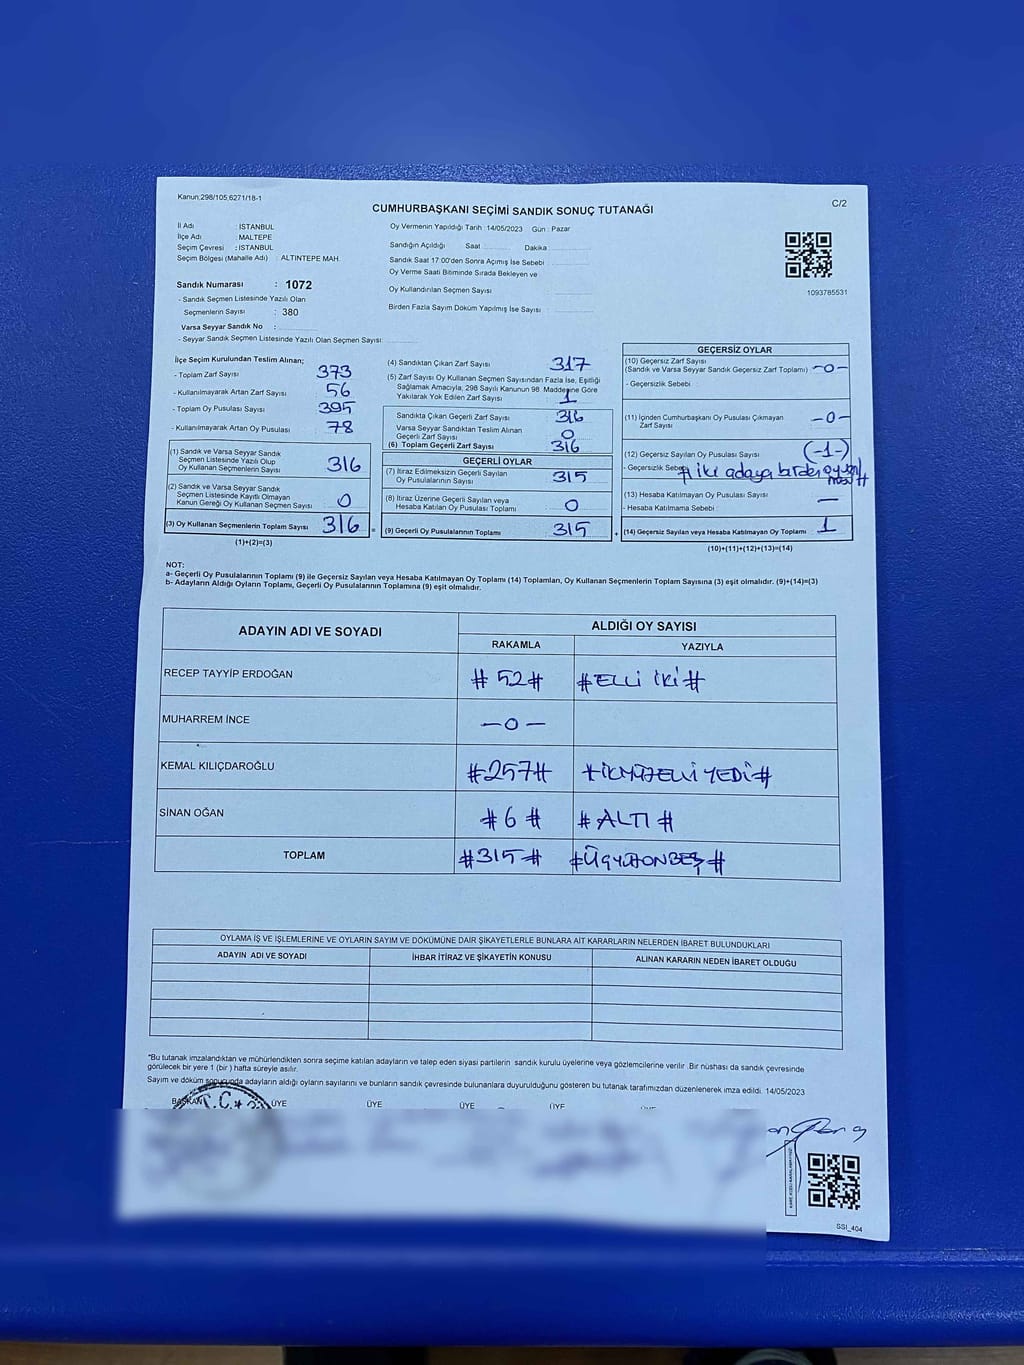 Kanun:298/105;6271/18-1
C/2
CUMHURBAŞKANI SEÇİMİ SANDIK SONUÇ TUTANAĞI
İl Adı : İSTANBUL
İlçe Adı : MALTEPE
Seçim Çevresi : İSTANBUL
Seçim Bölgesi (Mahalle Adı) : ALTINTEPE MAH.
Sandık Numarası : 1072
- Sandık Seçmen Listesinde Yazılı Olan
Seçmenlerin Sayısı : 380
Varsa Seyyar Sandık No :
- Seyyar Sandık Seçmen Listesinde Yazılı Olan Seçmen Sayısı:
Oy Vermenin Yapıldığı Tarih : 14/05/2023 Gün : Pazar
Sandığın Açıldığı Saat Dakika
Sandık Saat 17.00'den Sonra Açımış İse Sebebi
Oy Verme Saati Bitiminde Sırada Bekleyen ve
Oy Kullandırılan Seçmen Sayısı
Birden Fazla Sayım Döküm Yapılmış İse Sayısı
1093785531
İlçe Seçim Kurulundan Teslim Alınan;
- Toplam Zarf Sayısı 373
- Kullanılmayarak Artan Zarf Sayısı 56
- Toplam Oy Pusulası Sayısı 395
- Kullanılmayarak Artan Oy Pusulası 78
(1) Sandık ve Varsa Seyyar Sandık
Seçmen Listesinde Yazılı Olup
Oy Kullanan Seçmenlerin Sayısı 316
(2) Sandık ve Varsa Seyyar Sandık
Seçmen Listesinde Kayıtlı Olmayan
Kanun Gereği Oy Kullanan Seçmen Sayısı 0
(3) Oy Kullanan Seçmenlerin Toplam Sayısı 316 =
(1)+(2)=(3)
(4) Sandıktan Çıkan Zarf Sayısı 317
(5) Zarf Sayısı Oy Kullanan Seçmen Sayısından Fazla İse, Eşitliği
Sağlamak Amacıyla, 298 Sayılı Kanunun 98. Maddesine Göre
Yakılarak Yok Edilen Zarf Sayısı 1
Sandıkta Çıkan Geçerli Zarf Sayısı 316
Varsa Seyyar Sandıktan Teslim Alınan
Geçerli Zarf Sayısı 0
(6) Toplam Geçerli Zarf Sayısı 316
GEÇERLİ OYLAR
(7) İtiraz Edilmeksizin Geçerli Sayılan
Oy Pusulalarının Sayısı 315
(8) İtiraz Üzerine Geçerli Sayılan veya
Hesaba Katılan Oy Pusulası Toplamı 0
(9) Geçerli Oy Pusulalarının Toplamı 315 +
GEÇERSİZ OYLAR
(10) Geçersiz Zarf Sayısı
(Sandık ve Varsa Seyyar Sandık Geçersiz Zarf Toplamı) -0-
- Geçersizlik Sebebi
(11) İçinden Cumhurbaşkanı Oy Pusulası Çıkmayan
Zarf Sayısı -0-
(12) Geçersiz Sayılan Oy Pusulası Sayısı (-1-)
- Geçersizlik Sebebi # iki adaya birden
(13) Hesaba Katılmayan Oy Pusulası Sayısı —
- Hesaba Katılmama Sebebi :
(14) Geçersiz Sayılan veya Hesaba Katılmayan Oy Toplamı 1
(10)+(11)+(12)+(13)=(14)
NOT:
a- Geçerli Oy Pusulalarının Toplamı (9) ile Geçersiz Sayılan veya Hesaba Katılmayan Oy Toplamı (14) Toplamları, Oy Kullanan Seçmenlerin Toplam Sayısına (3) eşit olmalıdır. (9)+(14)=(3)
b- Adayların Aldığı Oyların Toplamı, Geçerli Oy Pusulalarının Toplamına (9) eşit olmalıdır.
ADAYIN ADI VE SOYADI
ALDIĞI OY SAYISI
RAKAMLA YAZIYLA
RECEP TAYYİP ERDOĞAN # 52 # # ELLİ İKİ #
MUHARREM İNCE -0-
KEMAL KILIÇDAROĞLU #257# #İKİYÜZELLİ YEDİ#
SİNAN OĞAN # 6 # # ALTI #
TOPLAM #315# #ÜÇYÜZONBEŞ#
OYLAMA İŞ VE İŞLEMLERİNE VE OYLARIN SAYIM VE DÖKÜMÜNE DAİR ŞİKAYETLERLE BUNLARA AİT KARARLARIN NELERDEN İBARET BULUNDUKLARI
ADAYIN ADI VE SOYADI İHBAR İTİRAZ VE ŞİKAYETİN KONUSU ALINAN KARARIN NEDEN İBARET OLDUĞU
*Bu tutanak imzalandıktan ve mühürlendikten sonra seçime katılan adayların ve talep eden siyasi partilerin sandık kurulu üyelerine veya gözlemcilerine verilir. Bir nüshası da sandık çevresinde
görülecek bir yere 1 (bir ) hafta süreyle asılır.
Sayım ve döküm sonucunda adayların aldığı oyların sayılarını ve bunların sandık çevresinde bulunanlara duyurulduğunu gösteren bu tutanak tarafımızdan düzenlenerek imza edildi. 14/05/2023
BAŞKAN ÜYE ÜYE ÜYE ÜYE ÜYE
T.C.
SSİ_404